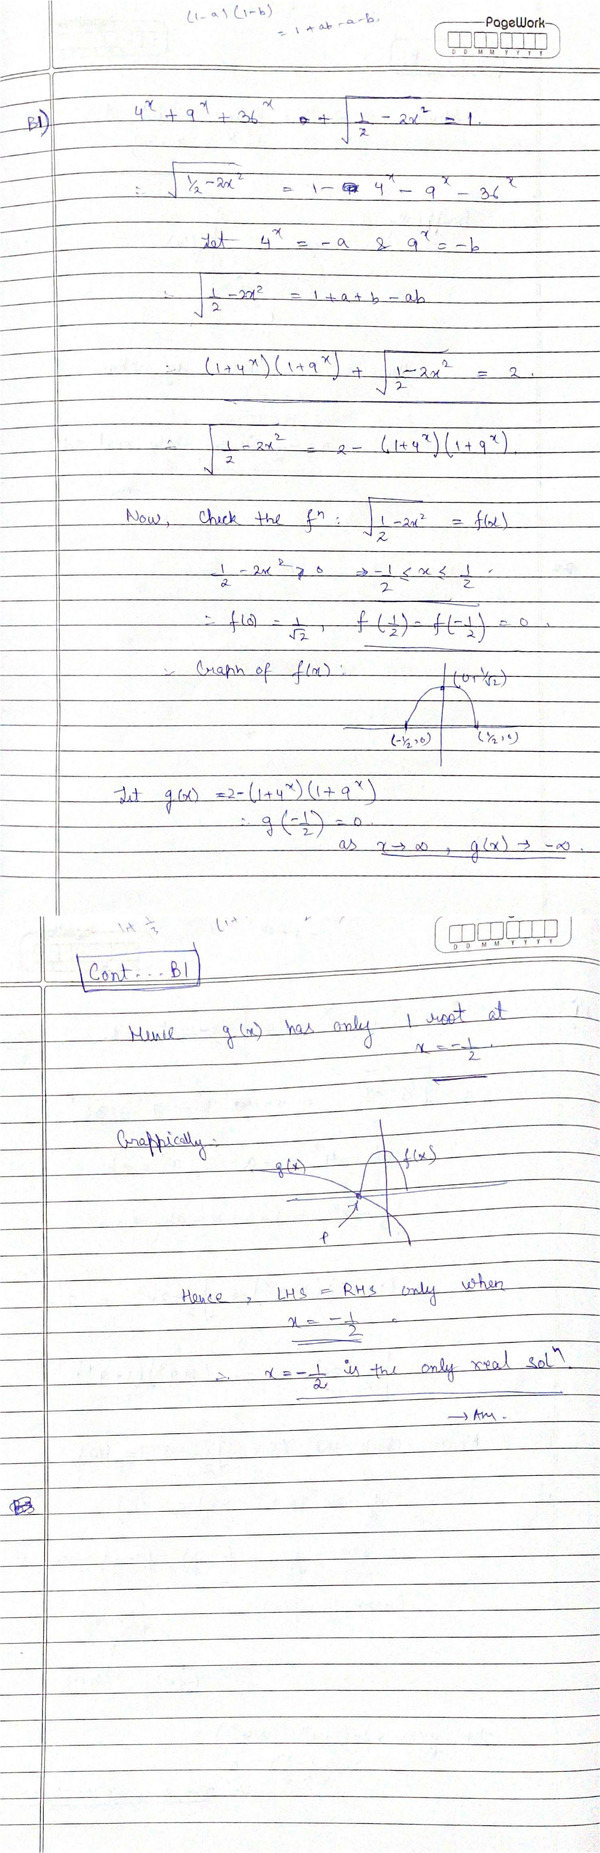 (1-a) (1-b)
= 1 + ab - a - b.
PageWork
D D M M Y Y Y Y
B1) 4^x + 9^x + 36^x + √(1/2 - 2x²) = 1.
∴ √(1/2 - 2x²) = 1 - 4^x - 9^x - 36^x
Let 4^x = -a & 9^x = -b
∴ √(1/2 - 2x²) = 1 + a + b - ab
∴ (1+4^x)(1+9^x) + √(1/2 - 2x²) = 2.
∴ √(1/2 - 2x²) = 2 - (1+4^x)(1+9^x).
Now, Check the fⁿ: √(1/2 - 2x²) = f(x)
1/2 - 2x² ≥ 0 ⇒ -1/2 ≤ x ≤ 1/2.
∴ f(0) = 1/√2, f(1/2) = f(-1/2) = 0.
∴ Graph of f(x):
(0, 1/√2)
(-1/2, 0) (1/2, 0)
Let g(x) = 2-(1+4^x)(1+9^x)
∴ g(-1/2) = 0.
as x → ∞, g(x) → -∞.
D D M M Y Y Y Y
Cont... B1
Hence g(x) has only 1 root at
x = -1/2.
Graphically:
g(x) f(x)
P
Hence, LHS = RHS only when
x = -1/2.
∴ x = -1/2 is the only real solⁿ.
→ Ans.